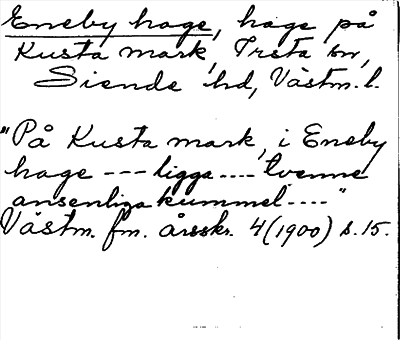 Eneby hage, hage på
Kusta mark, Irsta sn,
Siende hd, Västm. l.
"På Kusta mark, i Eneby
hage --- ligga .... tvenne
ansenliga kummel ...."
Västm. fm. årsskr. 4 (1900) s. 15.